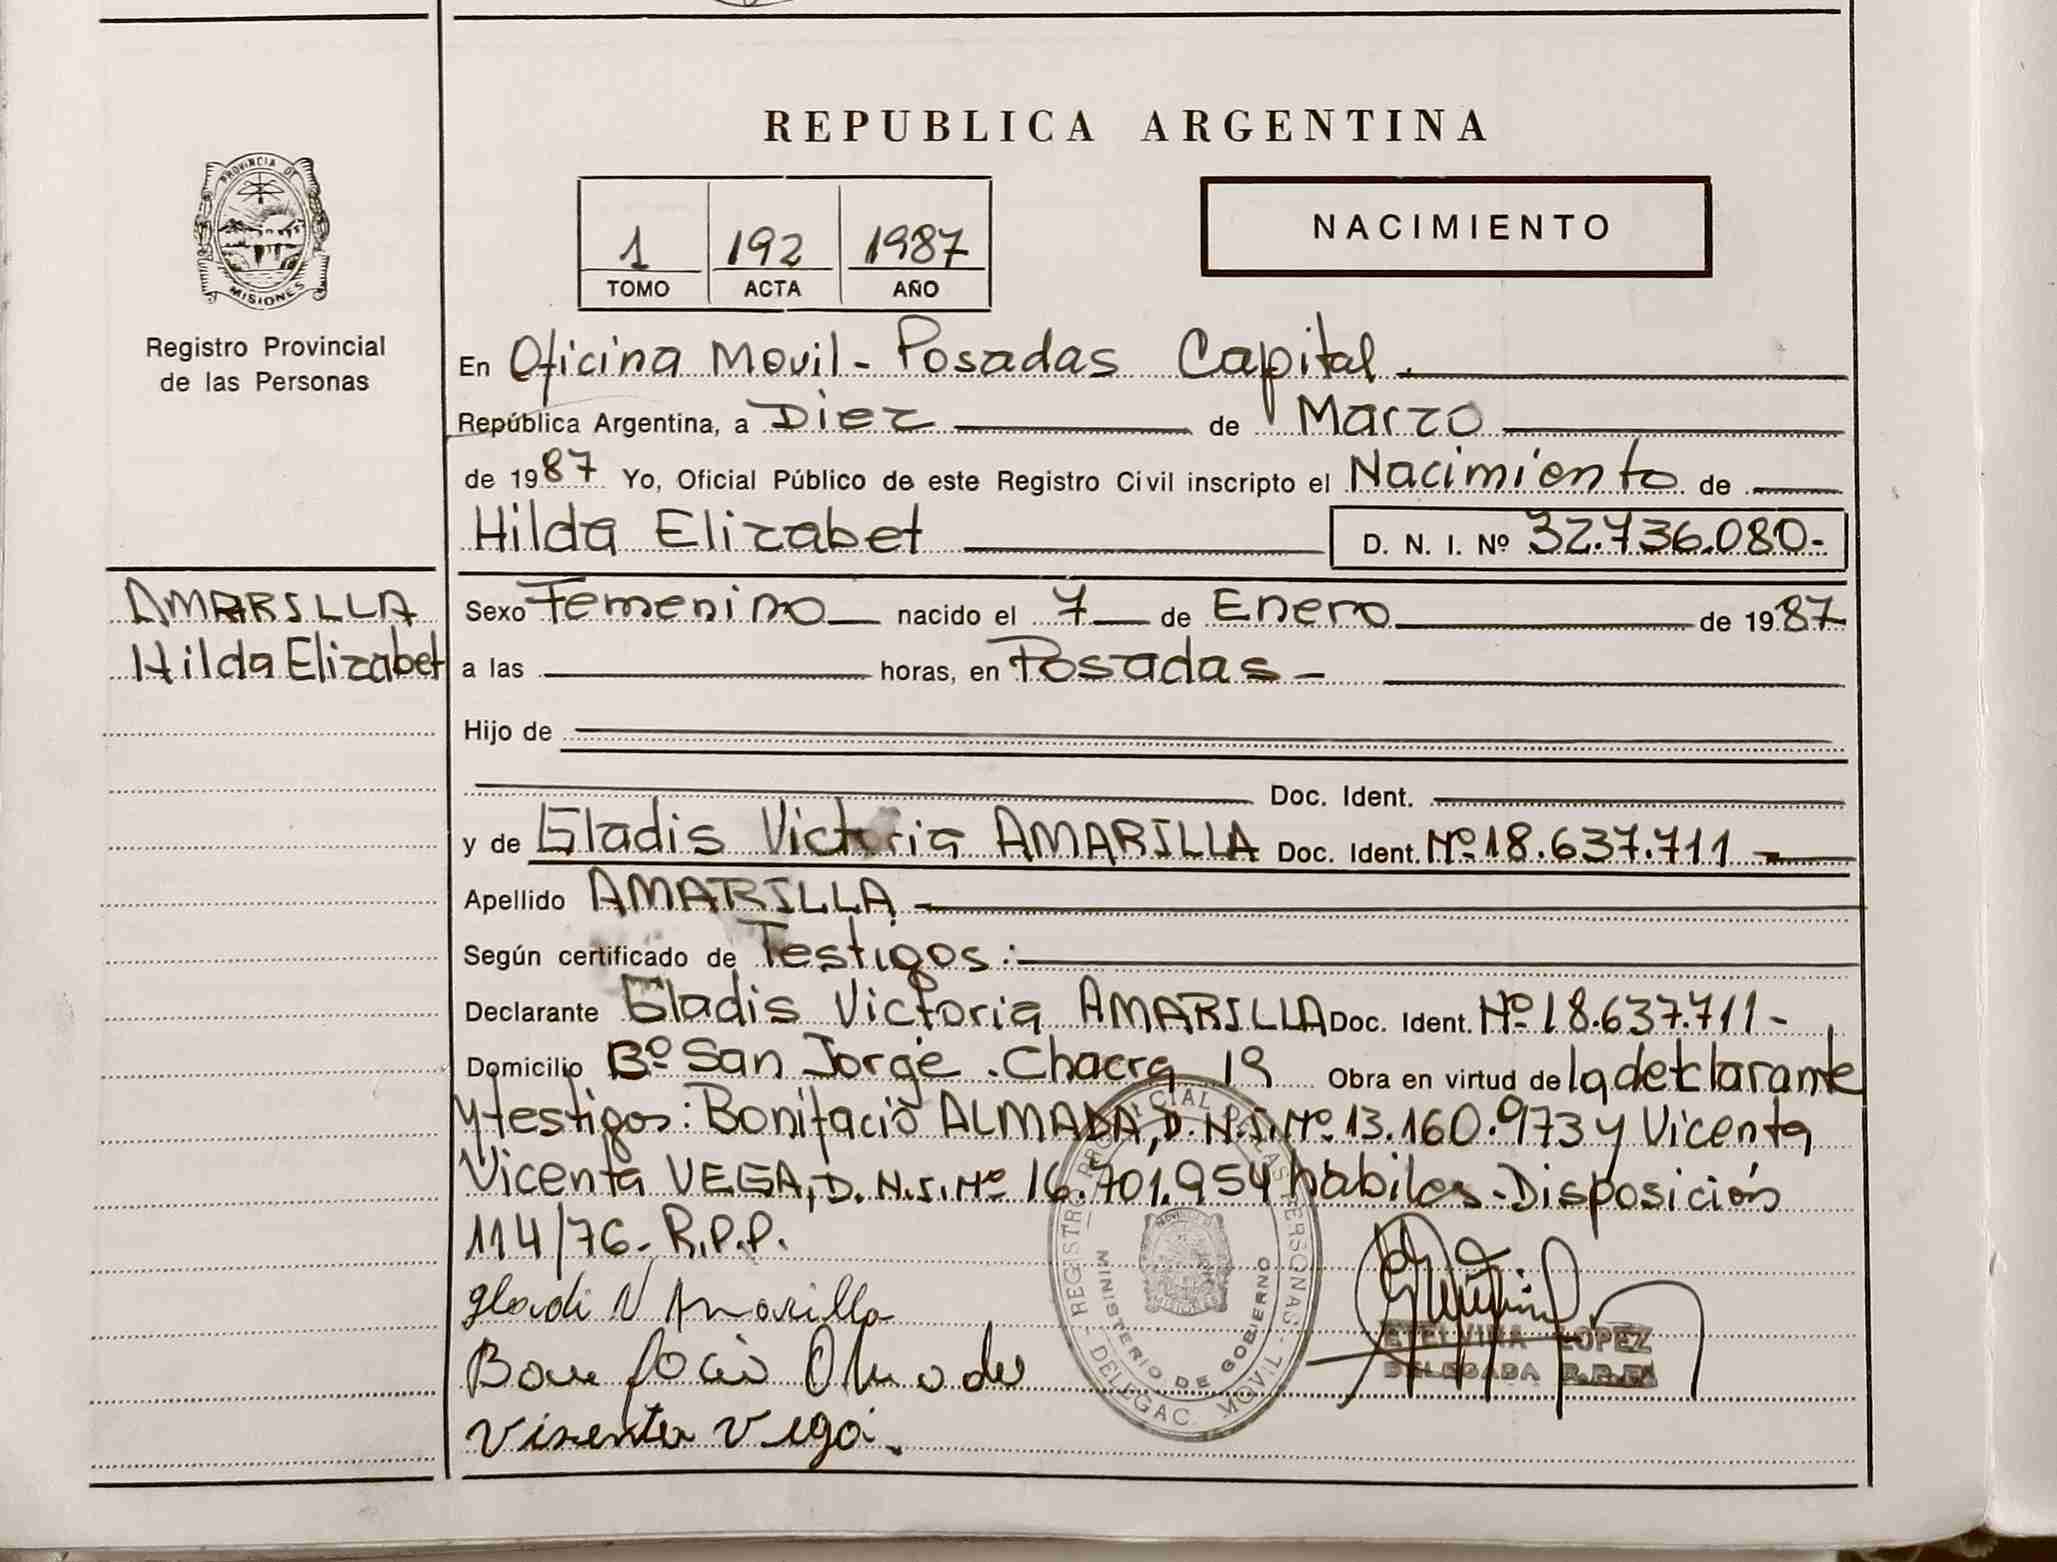 REPUBLICA ARGENTINA
PROVINCIA DE
MISIONES
Registro Provincial
de las Personas
1 192 1987
TOMO ACTA AÑO
NACIMIENTO
En Oficina Movil - Posadas Capital.
República Argentina, a Diez de Marzo
de 1987 Yo, Oficial Público de este Registro Civil inscripto el Nacimiento de
Hilda Elizabet D. N. I. Nº 32.736.080-
AMARILLA
Hilda Elizabet
Sexo Femenino nacido el 7 de Enero de 1987
a las horas, en Posadas -
Hijo de
Doc. Ident.
y de Gladis Victoria AMARILLA Doc. Ident. Nº 18.637.711 -
Apellido AMARILLA -
Según certificado de Testigos:
Declarante Gladis Victoria AMARILLA Doc. Ident. Nº 18.637.711-
Domicilio Bº San Jorge. Chacra 19 Obra en virtud de la declarante
y testigos: Bonifacio ALMADA, D.N.I. Nº 13.160.973 y Vicenta
Vicenta VEGA, D.N.I. Nº 16.701.954 habiles - Disposición
114/76- R.P.P.
REGISTRO PROVINCIAL DE LAS PERSONAS - DELEGAC. MOVIL -
MINISTERIO DE GOBIERNO
Gladi V Amarilla
Bonifocio Olmada
Visenta Vega.
ETELVINA LOPEZ
DELEGADA R.P.P.